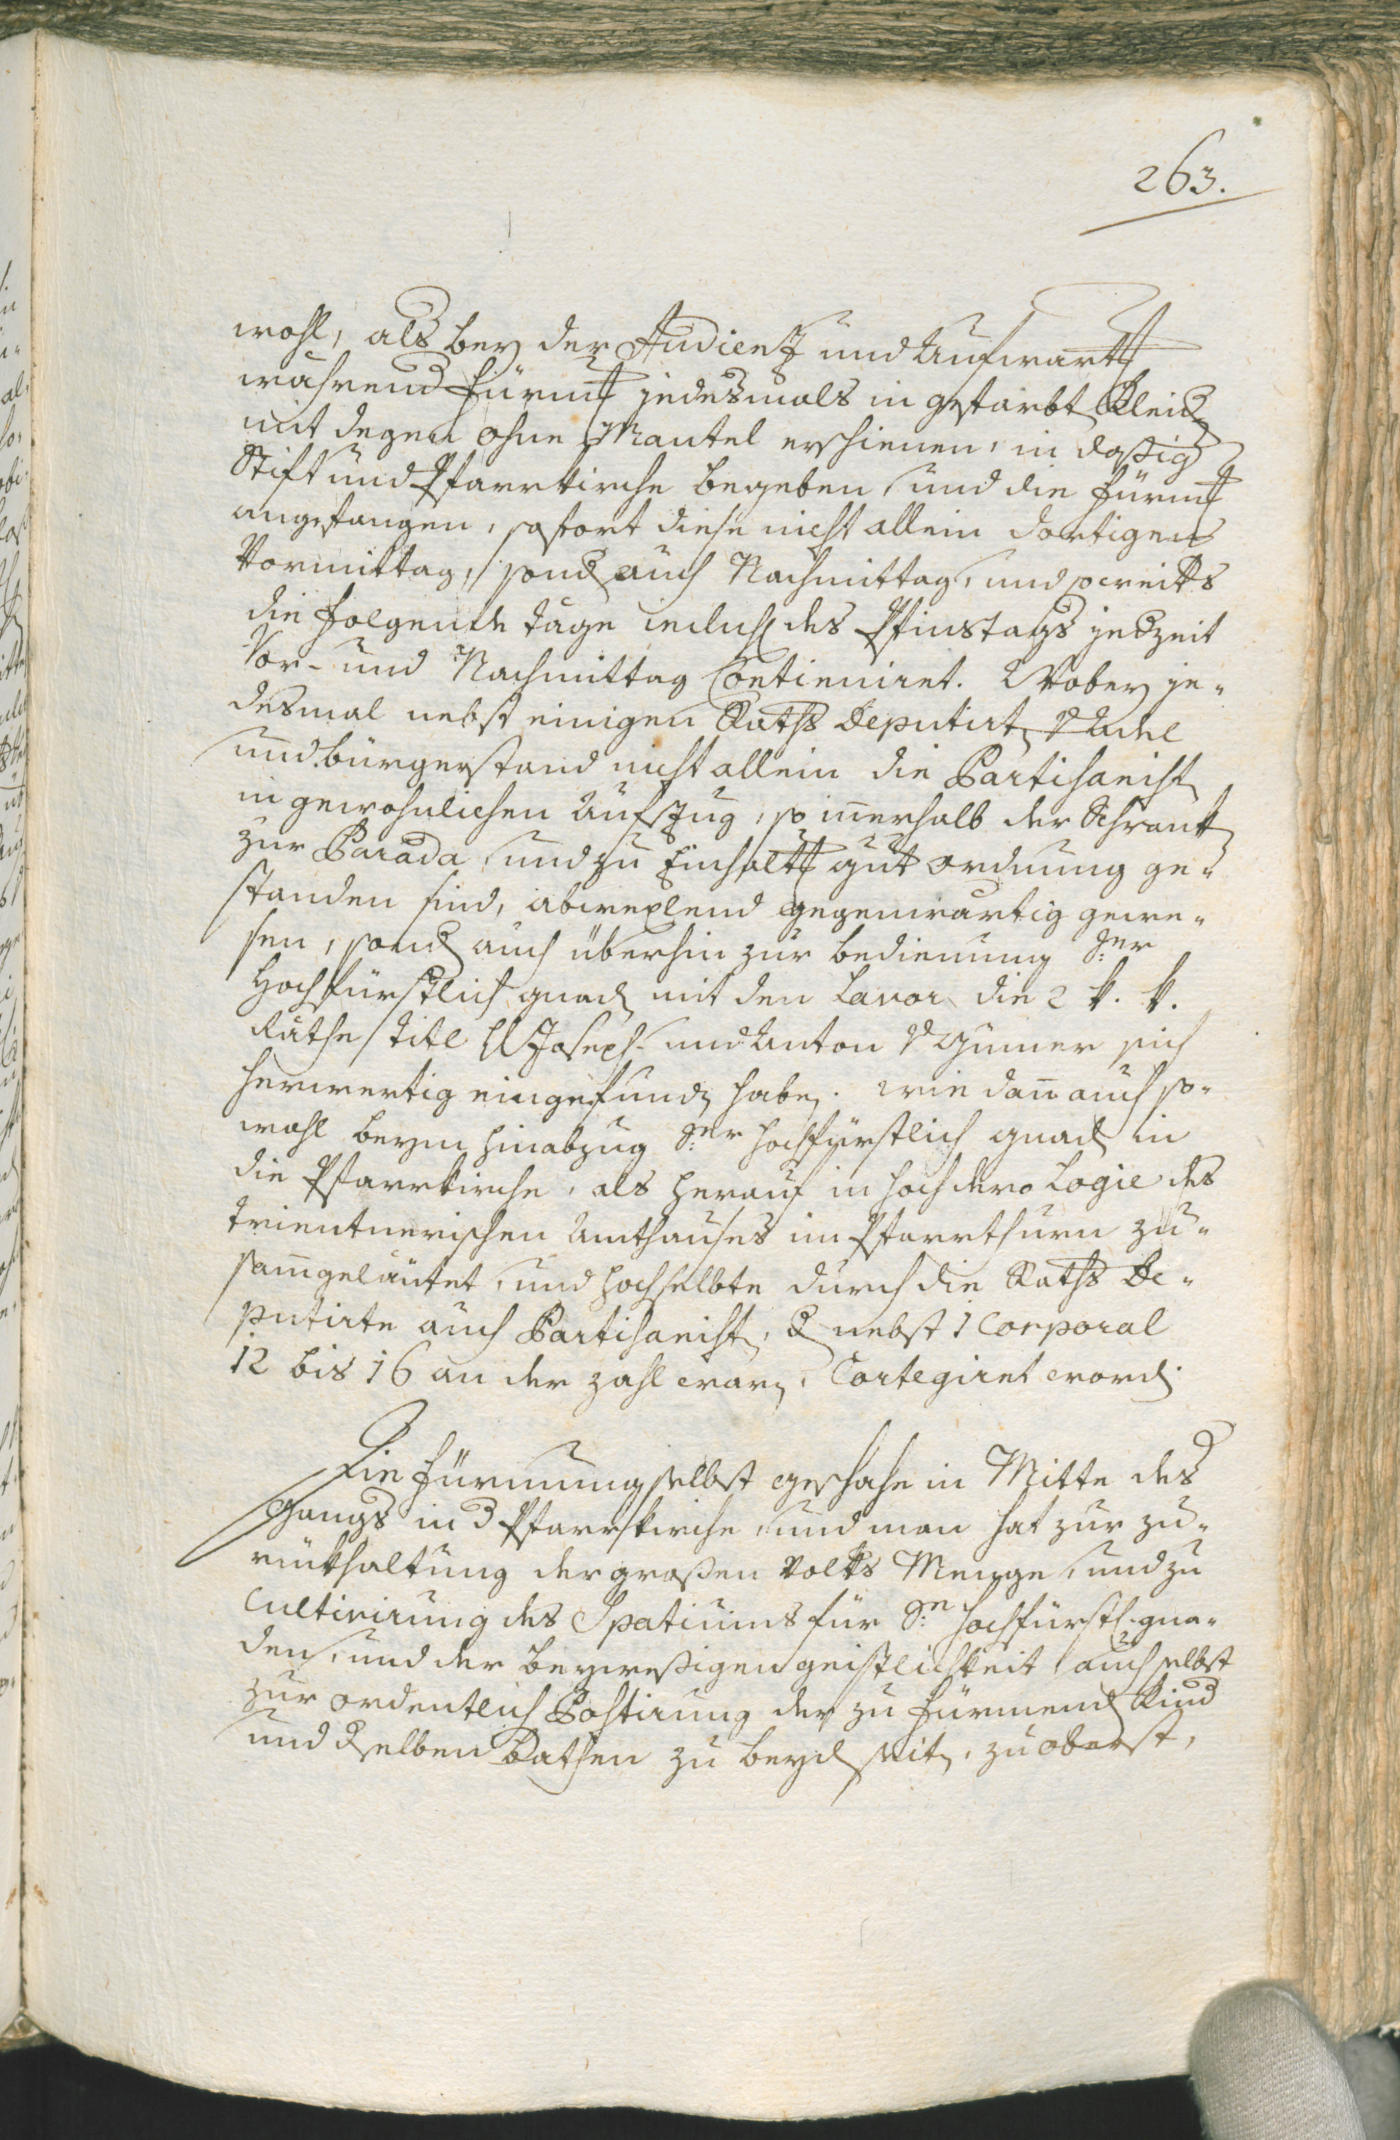 263.
wohl, als bey der Audienz und Aufwartt
während Fürmt jedesmals in gefärbt Kleid
mit degen ohne Mantel erschienen, in dassig
Stift und Pfarrkirche begeben, und die Fürmt
angefangen, sofort diese nicht allein dortigen
Vormittag, sond auch Nachmittag, und
die folgende täge des Pfinstags jedzeit
Vor- und Nachmittag Continuiret. Wobey je-
desmal nebst einigen Raths Deputirt Adel
und bürgerstand nicht allein die Partisanist
in gewohnlichen Aufzug, so innerhalb der Schrank
zur Parada, und zu Einhaltt gut ordnung ge-
standen sind, abwexlend gegenwärtig gewe-
sen, sond auch überhin zur bedienung Sr
Hochfürstlich gnad mit den Lavor die 2 k. k.
Räthe titl H Joseph und Anton v Gumer sich
herwertig eingefund habe. wie dann auch so-
wohl beym hinabzug Sr hochfürstlich gnad in
die Pfarrkirche, als herauf in hochdero Logie des
trientnerischen Amthauses im Pfarrthurn zu-
samgeläutet, und hochselbte durch die Raths De-
putirte auch Partisanist, d nebst 1 Corporal
12 bis 16 an der zahl war, Cortegiret word.
Die Fürmung selbst geschahe in Mitte des
Gangs in d Pfarrkirche, und man hat zur zu-
rükhaltung der großen Volks Menge, und zu
Cultivirung des Spatiums für Se hochfürstl. gna-
den, und der beywesßigen geistlichkeit auch selbst
zur ordentlich Postirung der zu Fürmend Kind
und dselben Pathen zu beyd seit, zu oberst,